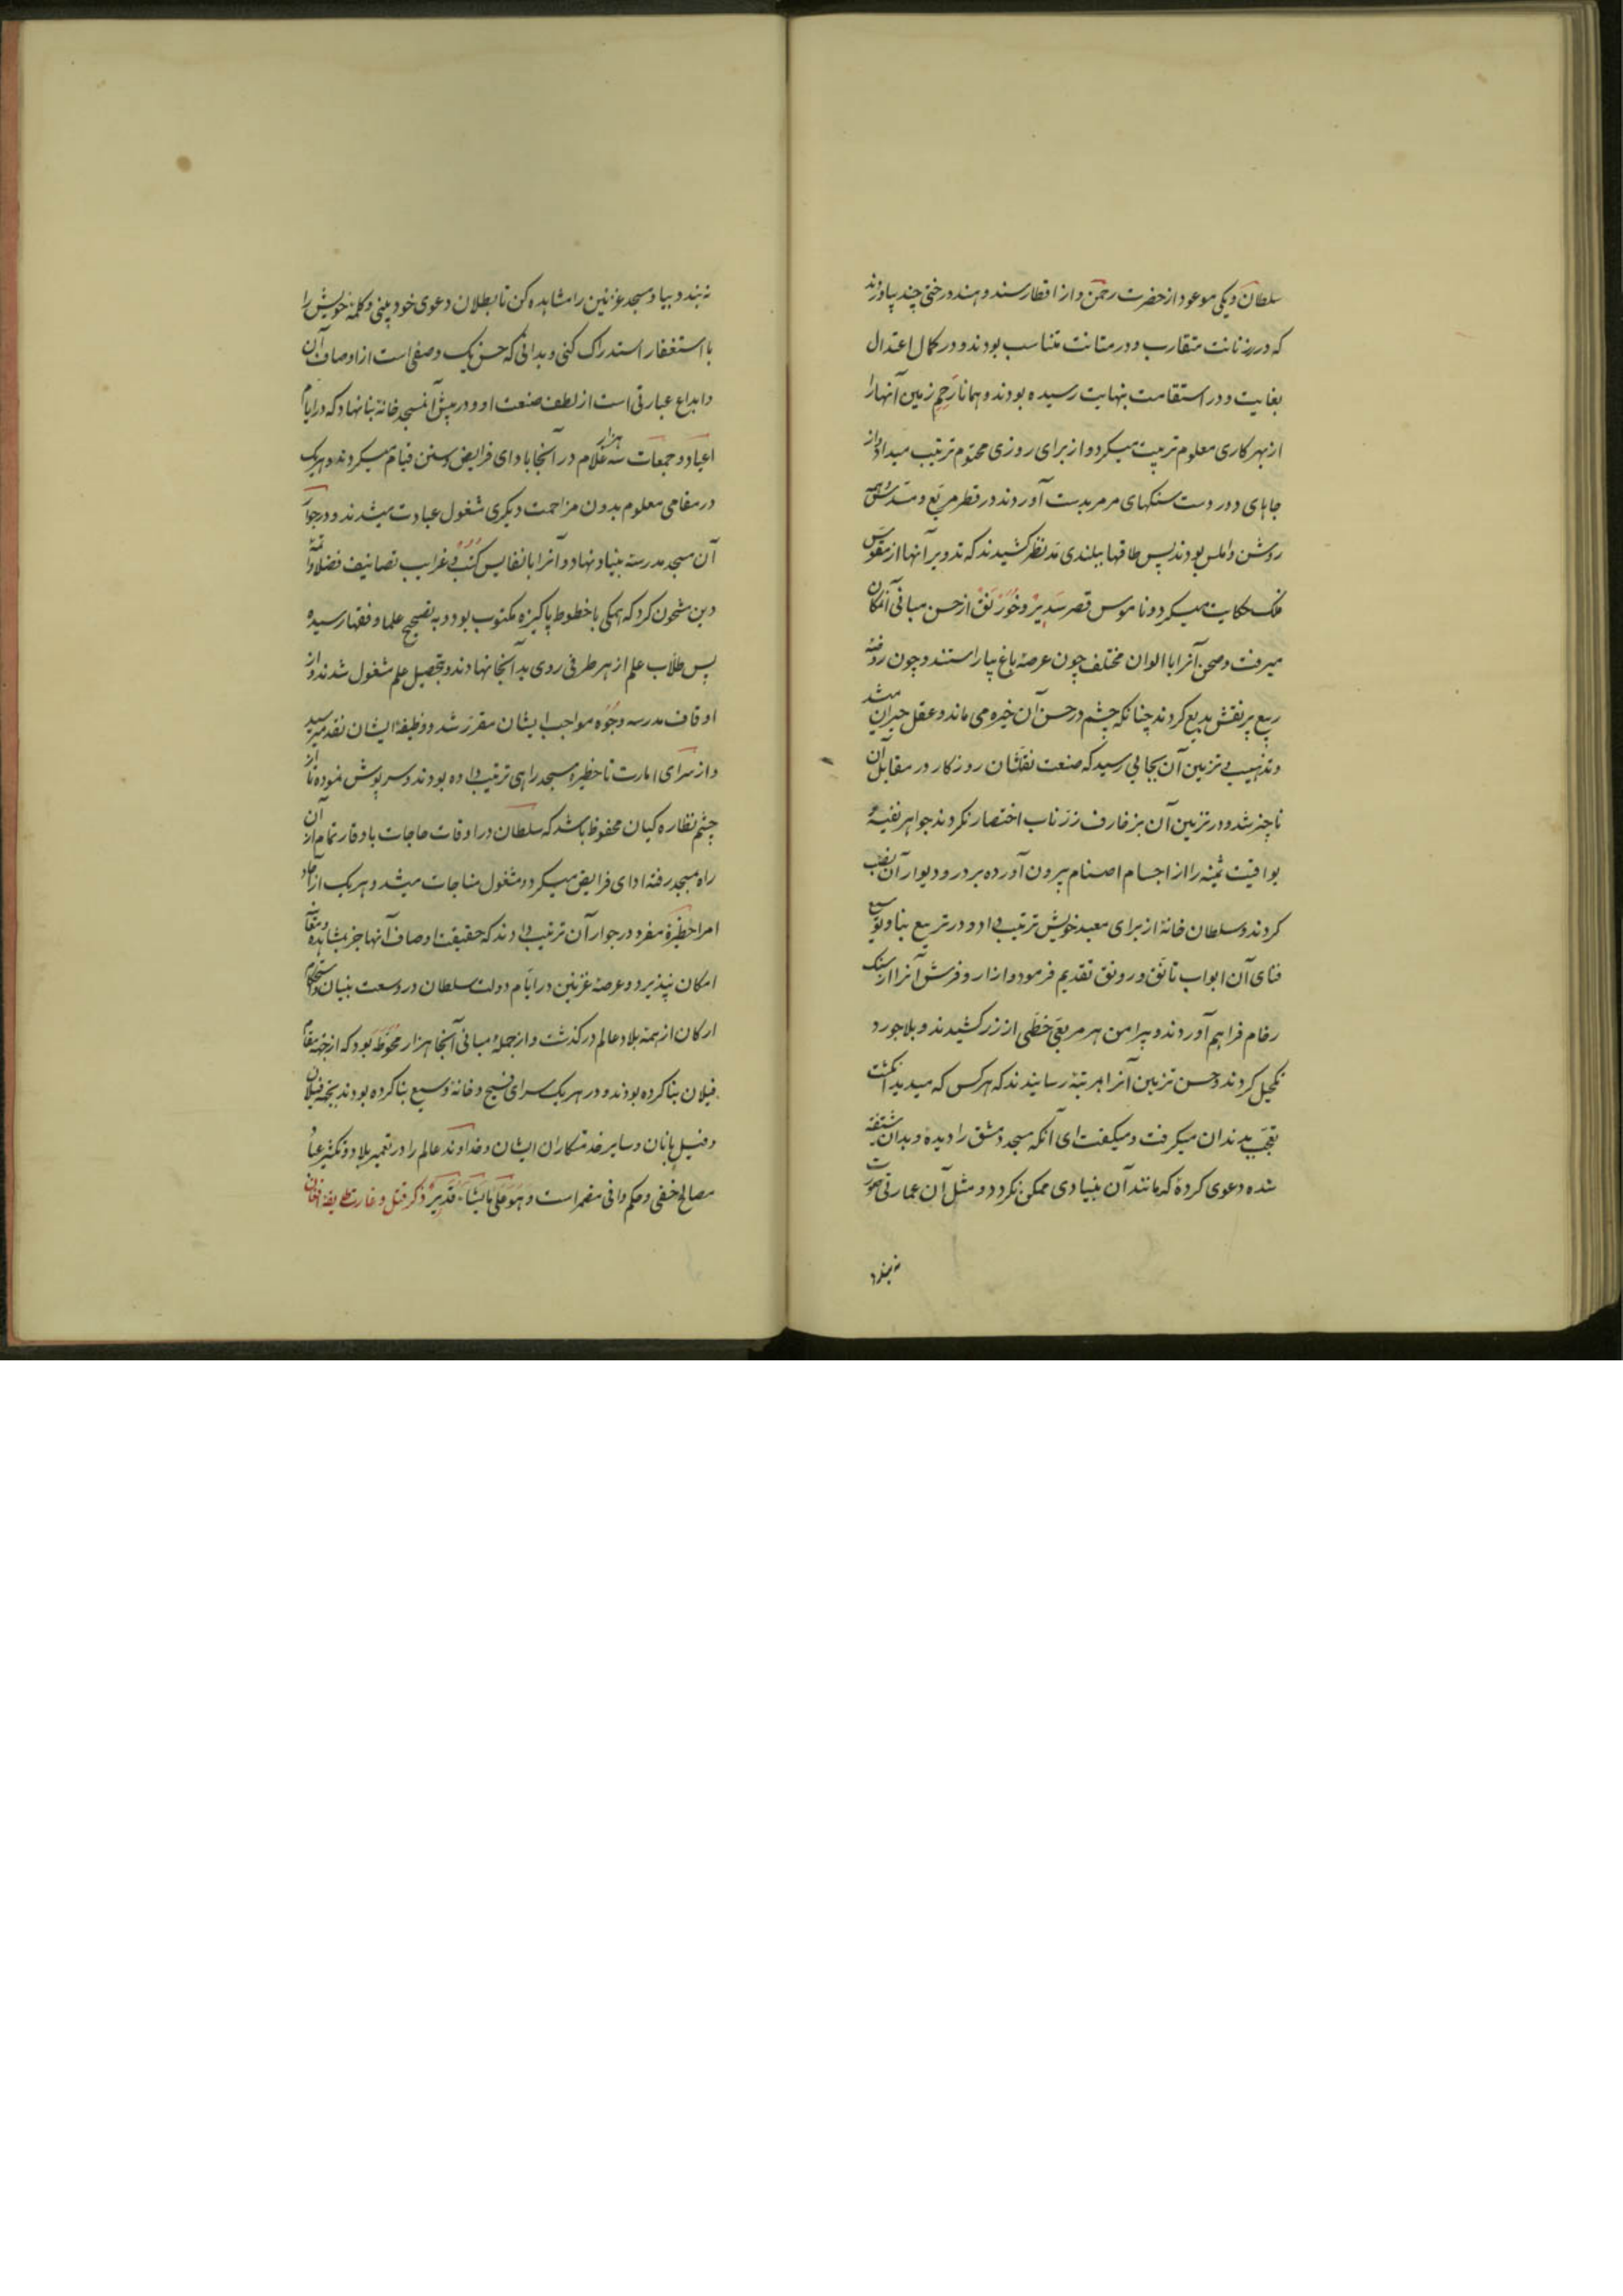 سلطان و یکی موعود از حضرت رحمن و از اقطار سند و هند درختی چند بیاوردند
که در رزانت متقارب و در متانت متناسب بودند و در کمال اعتدال
بغایت و در استقامت بنهایت رسیده بودند و همانا رحم زمین آنها را
از بهر کاری معلوم تربیت میکرد و از برای روزی محتوم ترتیب میداد و از
جاهای دور دست سنکهای مرمر بدست آوردند در قطر مربع و مسدس همه
روشن و املس بودند پس طاقها ببلندی مد نظر کشیدند که تدویر آنها از مقوس
فلک حکایت میکرد و ناموس قصر سدیر و خورنق از حسن مبانی آنمکان
میرفت و صحن آنرا با الوان مختلف چون عرصه باغ بیاراستند و چون روضه
ربیع پر نقش بدیع کردند چنانکه چشم در حسن آن خیره می ماند و عقل حیران میشد
و تذهیب و تزیین آن بجایی رسید که صنعت نقاشان روزکار در مقابل آن
ناچیز شد و در تزیین آن بزخارف زر ناب اختصار نکردند جواهر نفیسه
یواقیت ثمینه را از اجسام اصنام بیرون آورده بر در و دیوار آن نصب
کردند و سلطان خانهٔ از برای معبد خویش ترتیب داد و در تربیع بنا و توسیع
فنای آن ابواب تانق و رونق تقدیم فرمود و ازار و فرش آنرا از سنک
رخام فراهم آوردند و پیرامن هر مربعی خطی از زر کشیدند و بلاجورد
تکحیل کردند و حسن تزیین آنرا بمرتبهٔ رسانیدند که هر کس که میدید انکشت
تعجب بدندان میکرفت و میکفت ای آنکه مسجد دمشق را دیدهٔ و بدان شیفته
شده دعوی کردهٔ که مانند آن بنیادی ممکن نکردد و مثل آن عمارتی صورت
نبندد
نبندد بیا و مسجد غزنین را مشاهده کن تا بطلان دعوی خود بینی و کلمه خویش را
با استغفار استدراک کنی و بدانی که حسن یک وصفی است از اوصاف آن
و ابداع عبارتی است از لطف صنعت او و در پیش آنمسجد خانهٔ بنا نهاد که در ایام
اعیاد و جمعات سه هزار غلام در آنجا بادای فرایض و سنن قیام میکردند و هر یک
در مقامی معلوم بدون مزاحمت دیکری مشغول عبادت میشدند و در جوار
آن مسجد مدرسهٔ بنیاد نهاد و آنرا بانفایس کتب و غرایب تصانیف فضلا و ائمه
دین مشحون کرد که همکی با خطوط پاکیزه مکتوب بود و به تصحیح علما و فقها رسیده
پس طلاب علم از هر طرفی روی بدآنجا نهادند و بتحصیل علم مشغول شدند و از
اوقاف مدرسه وجوه مواجب ایشان مقرر شد و وظیفه ایشان نقد میرسید
و از سرای امارت تا حظیره مسجد راهی ترتیب داده بودند و سرپوش نموده تا از
چشم نظاره کیان محفوظ باشد که سلطان در اوقات حاجات با وقار تمام از آن
راه بمسجد رفته ادای فرایض میکرد و مشغول مناجات میشد و هر یک از آحاد
امرا حظیرهٔ مفرد در جوار آن ترتیب دادند که حقیقت اوصاف آنها جز بمشاهده و معاینه
امکان نپذیرد و عرصهٔ غزنین در ایام دولت سلطان در وسعت بنیان و استحکام
ارکان از همه بلاد عالم در کذشت و از جمله مبانی آنجا هزار محوطه بود که از جهة مقام
فیلان بنا کرده بودند و در هر یک سرای فسیح و خانهٔ وسیع بنا کرده بودند بجهة فیلان
و فیل بانان و سایر خدمتکاران ایشان و خداوند عالم را در تعمیر بلاد و تکثیر عباد
مصالح خفی و حکم وافی مضمر است و هو علی مایشاء قدیر ذکر قتل و غارت طایفه افغان